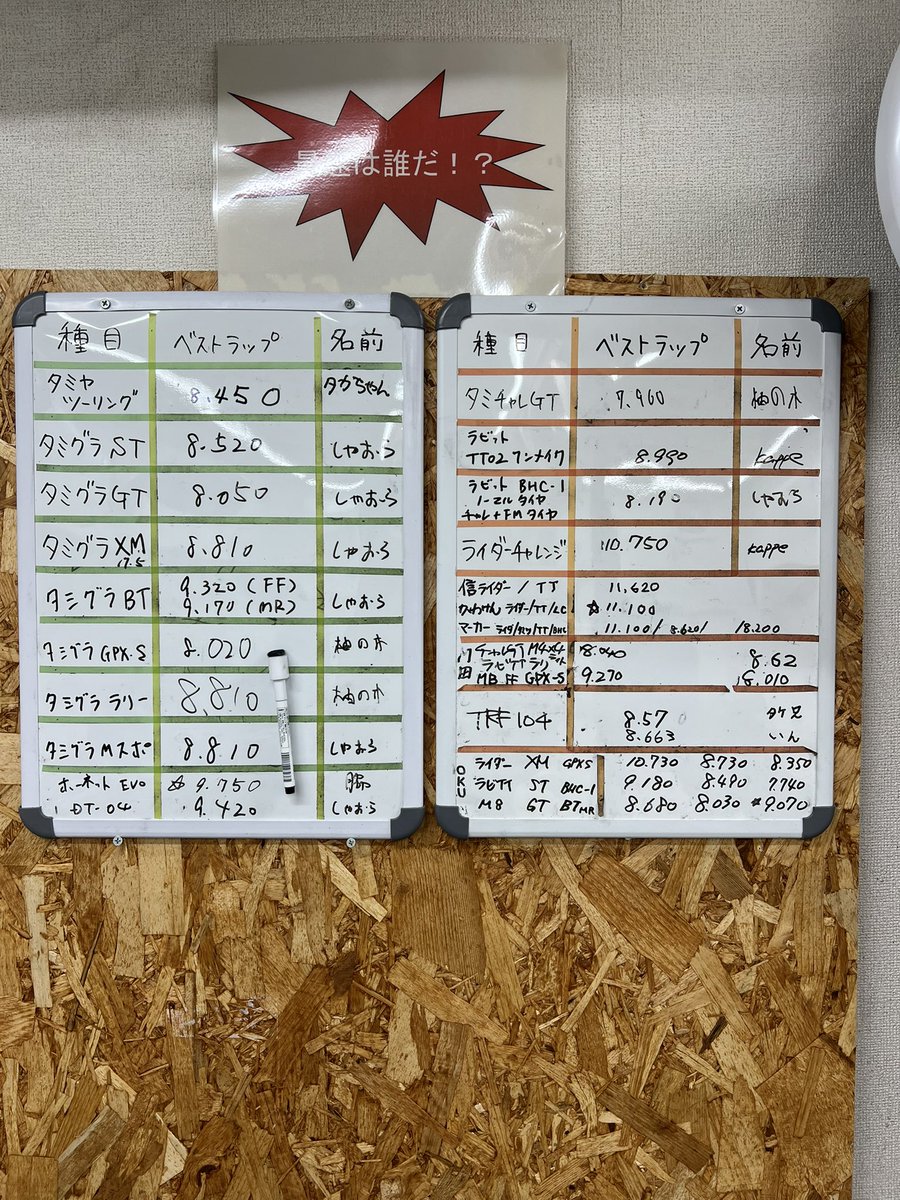 最速は誰だ！？
種目 ベストラップ 名前
タミヤ ツーリング 8.450 タカちゃん
タミグラ ST 8.520 しゃおら
タミグラ GT 8.050 しゃおら
タミグラ XM 17.5 8.810 しゃおら
タミグラ BT 9.320 (FF) しゃおら
9.170 (MR)
タミグラ GPX-S 8.020 柚の木
タミグラ ラリー 8.810 柚の木
タミグラ Mスポ 8.810 しゃおら
ホーネット EVO ☆ 9.750 豚
DT-04 9.420 しゃおら
種目 ベストラップ 名前
タミチャレGT 7.960 柚の木
ラビット
TT02 ワンメイク 8.990 kappe
ラビット BHC-1
ノーマルタイヤ 8.190 しゃおら
チャレ+FMタイヤ
ライダーチャレンジ 10.750 kappe
信ライダー/TT 11,620
ライダー/TT/ ☆11.100
マーカー /TT/BHC 11.100/ 8.620/ /8.200
M4x4 8.040 8.62
MB FF GPX-S 9.270 8.010
TRF 104 8.57 タケ兄
8.663 いん
OKU
ライダー XM GPXS 10.730 8.730 8.350
ラビTT ST BHC-1 9.180 8.490 7.740
M8 GT BT MR 8.680 8.030 *9.070